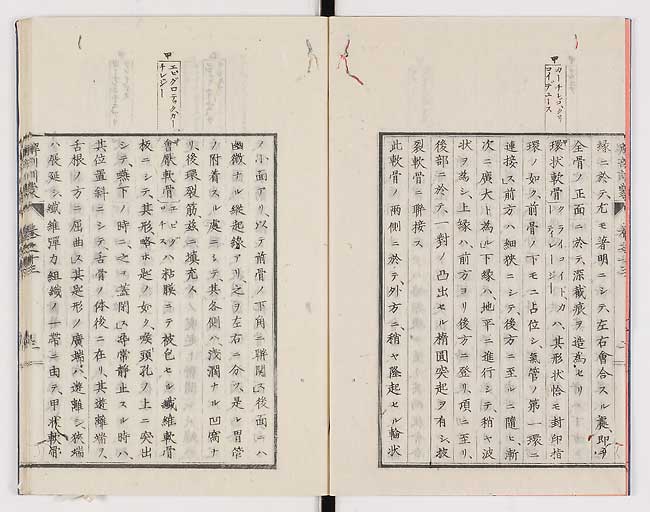 縁ニ於テ、尤モ著明ニシテ、左右會合スル裏、即
全骨ノ正面ニ於テ、深截痕ヲ造為セリ
環状軟骨
ハ、其形状恰モ封印指
環ノ如ク、前骨ノ下モニ占位シ、氣管ノ第一環ニ
連接ス、前方ハ細狭ニシテ、後方ニ至ルニ隨ヒ、漸
次ニ廣大ト為ル、下縁ハ、地平ニ進行シテ、稍ヤ波
状ヲ為シ、上縁ハ、前方ヨリ後方ニ登リ、項ニ至リ、
後部ニ於テ、一對ノ凸出セル楕圓突起ヲ有シ、披
裂軟骨ニ聯接ス
此軟骨ノ兩側ニ於テ、外方ニ、稍ヤ隆起セル輪状
甲
ノ小面アリ、以テ前骨ノ下角ニ聯関ス、後面ニハ
幽微ナル縦起線アリ、之ヲ左右ニ分ス、是レ胃管
ノ附着スル處ニシテ、其各側ハ、淺濶ナル凹窩ナ
リ、後環裂筋、茲ニ填充ス
會厭軟骨
ハ粘膜ニテ被包セル纖維軟骨
板ニシテ、其形略ホ匙ノ如ク、喉頭孔ノ上ニ突出
シテ、嚥下ノ時ニ、之ヲ蓋閉ス、尋常静止スル時ハ、
其位置斜ニシテ、舌骨ノ体後ニ在リ、其遊離端ヲ、
舌根ノ方ニ屈曲ス、其匙形ノ廣端ハ、遊離シ、狭端
ハ展延シ、纖維彈力組織ノ一帯ニ由テ、甲状軟骨